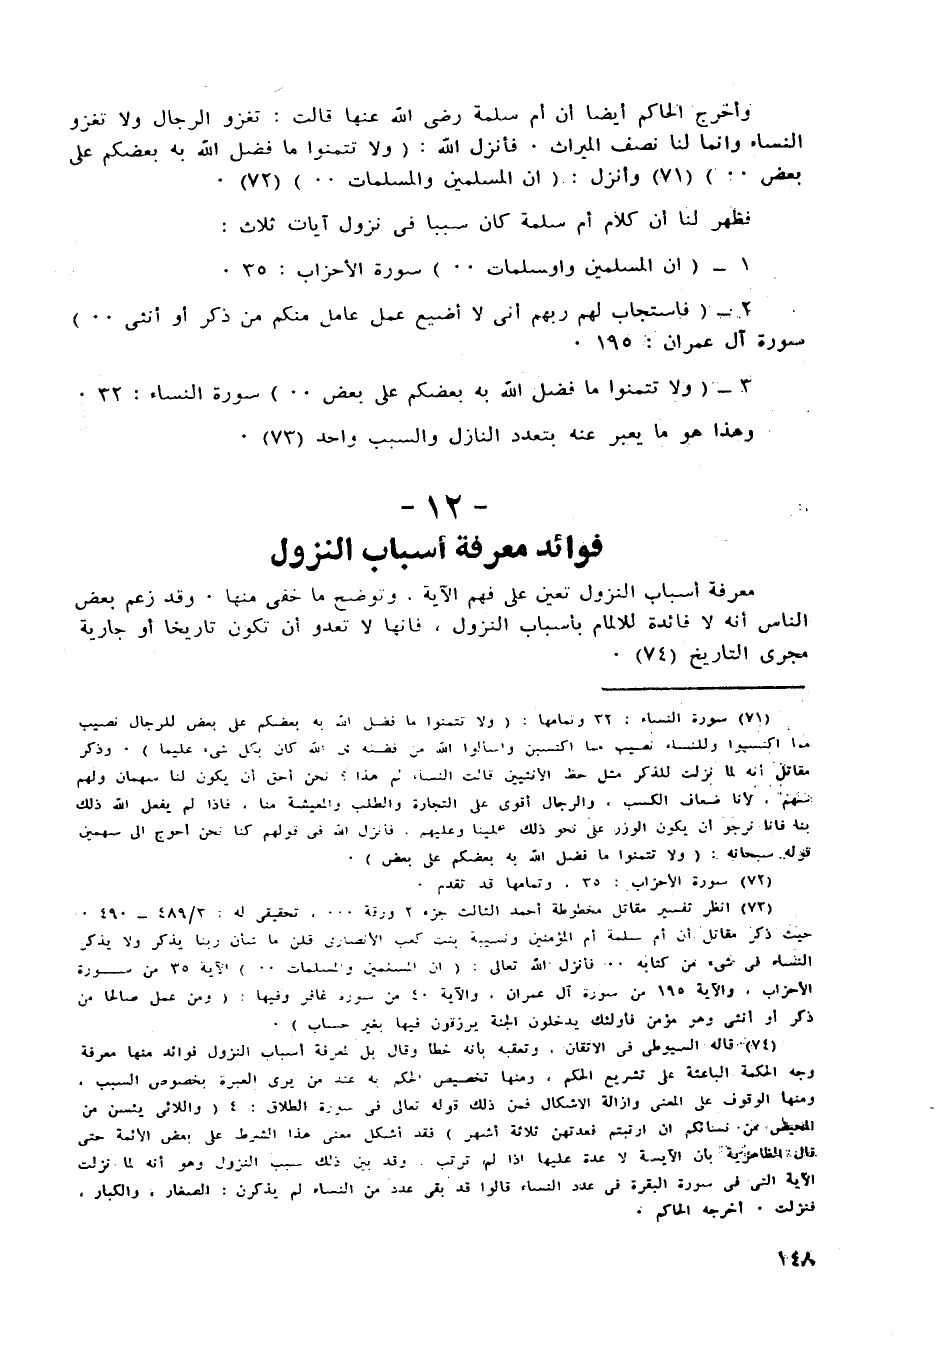 وأخرج الحاكم أيضا أن أم سلمة رضى الله عنها قالت : تغزو الرجال ولا تغزو
النساء وانما لنا نصف الميراث ٠ فأنزل الله : ( ولا تتمنوا ما فضل الله به بعضكم على
بعض ٠٠ ) (٧١) وأنزل : ( ان المسلمين والمسلمات ٠٠ ) (٧٢) ٠
فظهر لنا أن كلام أم سلمة كان سببا فى نزول آيات ثلاث :
١ ـ ( ان المسلمين واوسلمات ٠٠ ) سورة الأحزاب : ٣٥ ٠
٢ ـ ( فاستجاب لهم ربهم أنى لا أضيع عمل عامل منكم من ذكر أو أنثى ٠٠ )
سورة آل عمران : ١٩٥ ٠
٣ ـ ( ولا تتمنوا ما فضل الله به بعضكم على بعض ٠٠ ) سورة النساء : ٣٢ ٠
وهذا هو ما يعبر عنه بتعدد النازل والسبب واحد (٧٣) ٠
- ١٢ -
فوائد معرفة أسباب النزول
معرفة أسباب النزول تعين على فهم الآية ، وتوضح ما خفى منها ٠ وقد زعم بعض
الناس أنه لا فائدة للالمام بأسباب النزول ، فانها لا تعدو أن تكون تاريخا أو جارية
مجرى التاريخ (٧٤) ٠
(٧١) سورة النساء : ٣٢ وتمامها : ( ولا تتمنوا ما فضل الله به بعضكم على بعض للرجال نصيب
مما اكتسبوا وللنساء نصيب مما اكتسبن واسألوا الله من فضله ان الله كان بكل شىء عليما ) ٠ وذكر
مقاتل أنه لما نزلت للذكر مثل حظ الأنثيين قالت النساء لم هذا ؟ نحن أحق أن يكون لنا سهمان ولهم
سهم ، لأنا ضعاف الكسب ، والرجال أقوى على التجارة والطلب والمعيشة منا ، فاذا لم يفعل الله ذلك
بنا فانا نرجو أن يكون الوزر على نحو ذلك علينا وعليهم . فأنزل الله فى قولهم كنا نحن أحوج الى سهمين
قوله سبحانه : ( ولا تتمنوا ما فضل الله به بعضكم على بعض ) ٠
(٧٢) سورة الأحزاب : ٣٥ ، وتمامها قد تقدم ٠
(٧٣) انظر تفسير مقاتل مخطوطة أحمد الثالث جزء ٢ ورقة ٠٠٠ ، تحقيقى له : ٤٨٩/٣ ـ ٤٩٠ ٠
حيث ذكر مقاتل أن أم سلمة أم المؤمنين ونسيبة بنت كعب الأنصارى قلن ما شأن ربنا يذكر ولا يذكر
النساء فى شىء من كتابه ٠٠ فأنزل الله تعالى : ( ان المسلمين والمسلمات ٠٠ ) الآية ٣٥ من سورة
الأحزاب ، والآية ١٩٥ من سورة آل عمران ، والآية ٤٠ من سورة غافر وفيها : ( ومن عمل صالحا من
ذكر أو أنثى وهو مؤمن فأولئك يدخلون الجنة يرزقون فيها بغير حساب ) ٠
(٧٤) قاله السيوطى فى الاتقان ، وتعقبه بأنه خطأ وقال بل لمعرفة أسباب النزول فوائد منها معرفة
وجه الحكمة الباعثة على تشريع الحكم ، ومنها تخصيص الحكم به عند من يرى العبرة بخصوص السبب ،
ومنها الوقوف على المعنى وازالة الاشكال فمن ذلك قوله تعالى فى سورة الطلاق : ٤ ( واللائى يئسن من
المحيض من نسائكم ان ارتبتم فعدتهن ثلاثة أشهر ) فقد أشكل معنى هذا الشرط على بعض الأئمة حتى
قال الظاهرية بأن الآيسة لا عدة عليها اذا لم ترتب . وقد بين ذلك سبب النزول وهو أنه لما نزلت
الآية التى فى سورة البقرة فى عدد النساء قالوا قد بقى عدد من النساء لم يذكرن : الصغار ، والكبار ،
فنزلت ٠ أخرجه الحاكم ٠
١٤٨